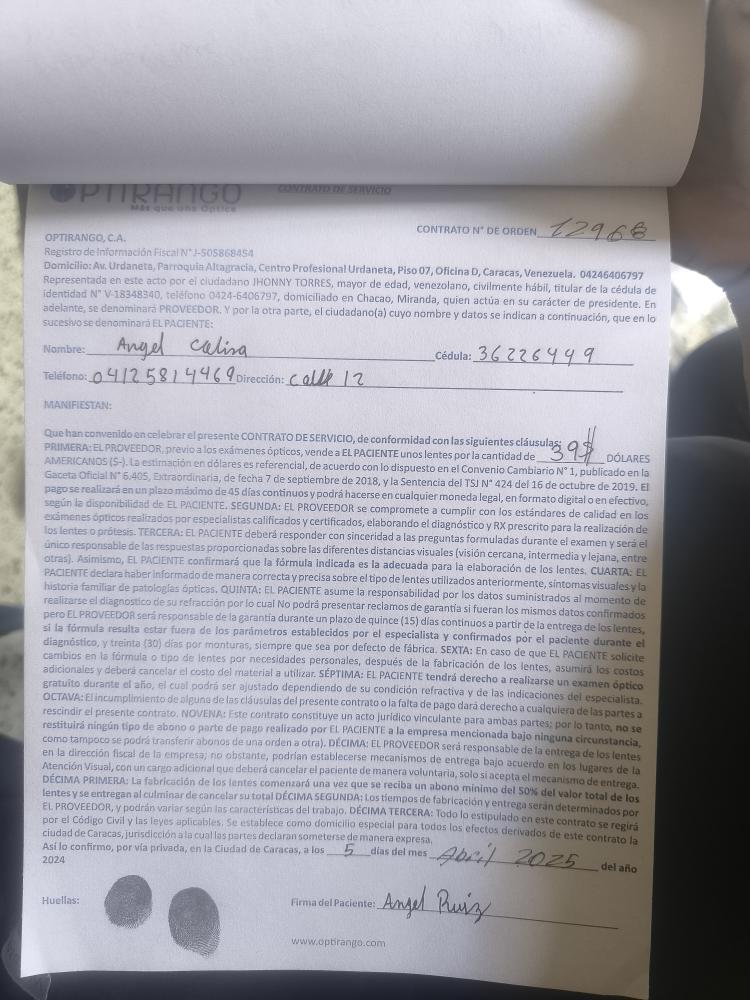 OPTIRANGO
Más que una Óptica
CONTRATO DE SERVICIO
CONTRATO N° DE ORDEN 12968
OPTIRANGO, C.A.
Registro de Información Fiscal N° J-505868454
Domicilio: Av. Urdaneta, Parroquia Altagracia, Centro Profesional Urdaneta, Piso 07, Oficina D, Caracas, Venezuela. 04246406797
Representada en este acto por el ciudadano JHONNY TORRES, mayor de edad, venezolano, civilmente hábil, titular de la cédula de
identidad N° V-18348340, teléfono 0424-6406797, domiciliado en Chacao, Miranda, quien actúa en su carácter de presidente. En
adelante, se denominará PROVEEDOR. Y por la otra parte, el ciudadano(a) cuyo nombre y datos se indican a continuación, que en lo
sucesivo se denominará EL PACIENTE:
Nombre: Angel Cédula: 36226449
Teléfono: 04125814469 Dirección: calle 12
MANIFIESTAN:
Que han convenido en celebrar el presente CONTRATO DE SERVICIO, de conformidad con las siguientes cláusulas:
PRIMERA: EL PROVEEDOR, previo a los exámenes ópticos, vende a EL PACIENTE unos lentes por la cantidad de 39$ DÓLARES
AMERICANOS (S-). La estimación en dólares es referencial, de acuerdo con lo dispuesto en el Convenio Cambiario N° 1, publicado en la
Gaceta Oficial N° 6.405, Extraordinaria, de fecha 7 de septiembre de 2018, y la Sentencia del TSJ N° 424 del 16 de octubre de 2019. El
pago se realizará en un plazo máximo de 45 días continuos y podrá hacerse en cualquier moneda legal, en formato digital o en efectivo,
según la disponibilidad de EL PACIENTE. SEGUNDA: EL PROVEEDOR se compromete a cumplir con los estándares de calidad en los
exámenes ópticos realizados por especialistas calificados y certificados, elaborando el diagnóstico y RX prescrito para la realización de
los lentes o prótesis. TERCERA: EL PACIENTE deberá responder con sinceridad a las preguntas formuladas durante el examen y será el
único responsable de las respuestas proporcionadas sobre las diferentes distancias visuales (visión cercana, intermedia y lejana, entre
otras). Asimismo, EL PACIENTE confirmará que la fórmula indicada es la adecuada para la elaboración de los lentes. CUARTA: EL
PACIENTE declara haber informado de manera correcta y precisa sobre el tipo de lentes utilizados anteriormente, síntomas visuales y la
historia familiar de patologías ópticas. QUINTA: EL PACIENTE asume la responsabilidad por los datos suministrados al momento de
realizarse el diagnostico de su refracción por lo cual No podrá presentar reclamos de garantía si fueran los mismos datos confirmados
pero EL PROVEEDOR será responsable de la garantía durante un plazo de quince (15) días continuos a partir de la entrega de los lentes,
si la fórmula resulta estar fuera de los parámetros establecidos por el especialista y confirmados por el paciente durante el
diagnóstico, y treinta (30) días por monturas, siempre que sea por defecto de fábrica. SEXTA: En caso de que EL PACIENTE solicite
cambios en la fórmula o tipo de lentes por necesidades personales, después de la fabricación de los lentes, asumirá los costos
adicionales y deberá cancelar el costo del material a utilizar. SÉPTIMA: EL PACIENTE tendrá derecho a realizarse un examen óptico
gratuito durante el año, el cual podrá ser ajustado dependiendo de su condición refractiva y de las indicaciones del especialista.
OCTAVA: El incumplimiento de alguno de las cláusulas del presente contrato o la falta de pago dará derecho a cualquiera de las partes a
rescindir el presente contrato. NOVENA: Este contrato constituye un acto jurídico vinculante para ambas partes; por lo tanto, no se
restituirá ningún tipo de abono o parte de pago realizado por EL PACIENTE a la empresa mencionada bajo ninguna circunstancia,
como tampoco se podrá transferir abonos de una orden a otra). DÉCIMA: EL PROVEEDOR será responsable de la entrega de los lentes
en la dirección fiscal de la empresa; no obstante, podrían establecerse mecanismos de entrega bajo acuerdo en los lugares de la
Atención Visual, con un cargo adicional que deberá cancelar el paciente de manera voluntaria, solo si acepta el mecanismo de entrega.
DÉCIMA PRIMERA: La fabricación de los lentes comenzará una vez que se reciba un abono mínimo del 50% del valor total de los
lentes y se entregan al culminar de cancelar su total DÉCIMA SEGUNDA: Los tiempos de fabricación y entrega serán determinados por
EL PROVEEDOR, y podrán variar según las características del trabajo. DÉCIMA TERCERA: Todo lo estipulado en este contrato se regirá
por el Código Civil y las leyes aplicables. Se establece como domicilio especial para todos los efectos derivados de este contrato la
ciudad de Caracas, jurisdicción a la cual las partes declaran someterse de manera expresa.
Así lo confirmo, por vía privada, en la Ciudad de Caracas, a los 5 días del mes Abril 2025 del año
2024
Huellas:
Firma del Paciente: Angel Ruiz
www.optirango.com